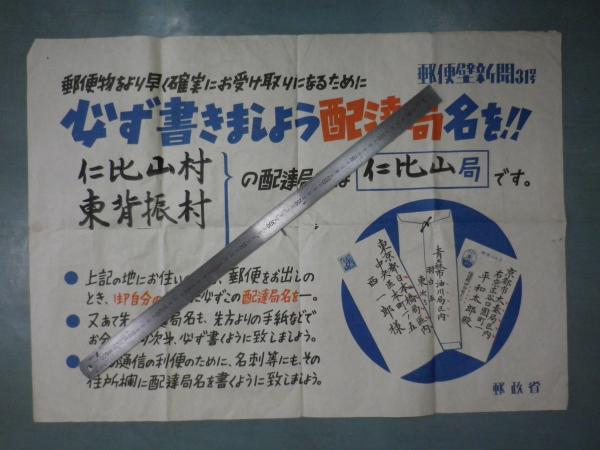 郵便物をより早く確実にお受け取りになるために
郵便壁新聞3号
必ず書きましょう配達局名を!!
仁比山村
東背振村
の配達局 は
仁比山局
です。
● 上記の地にお住い 、郵便をお出しの
とき、御自分の に必ずこの配達局名を―。
● 又あて先 達局名も、先方よりの手紙などで
お分 次第、必ず書くように致しましょう。
● の通信の利便のために、名刺等にも、その
住所欄に配達局名を書くように致しましょう。
東京都日本橋局区内
西一郎様
青森市油川局区内
京都市太秦局区内
平和太郎
郵政省